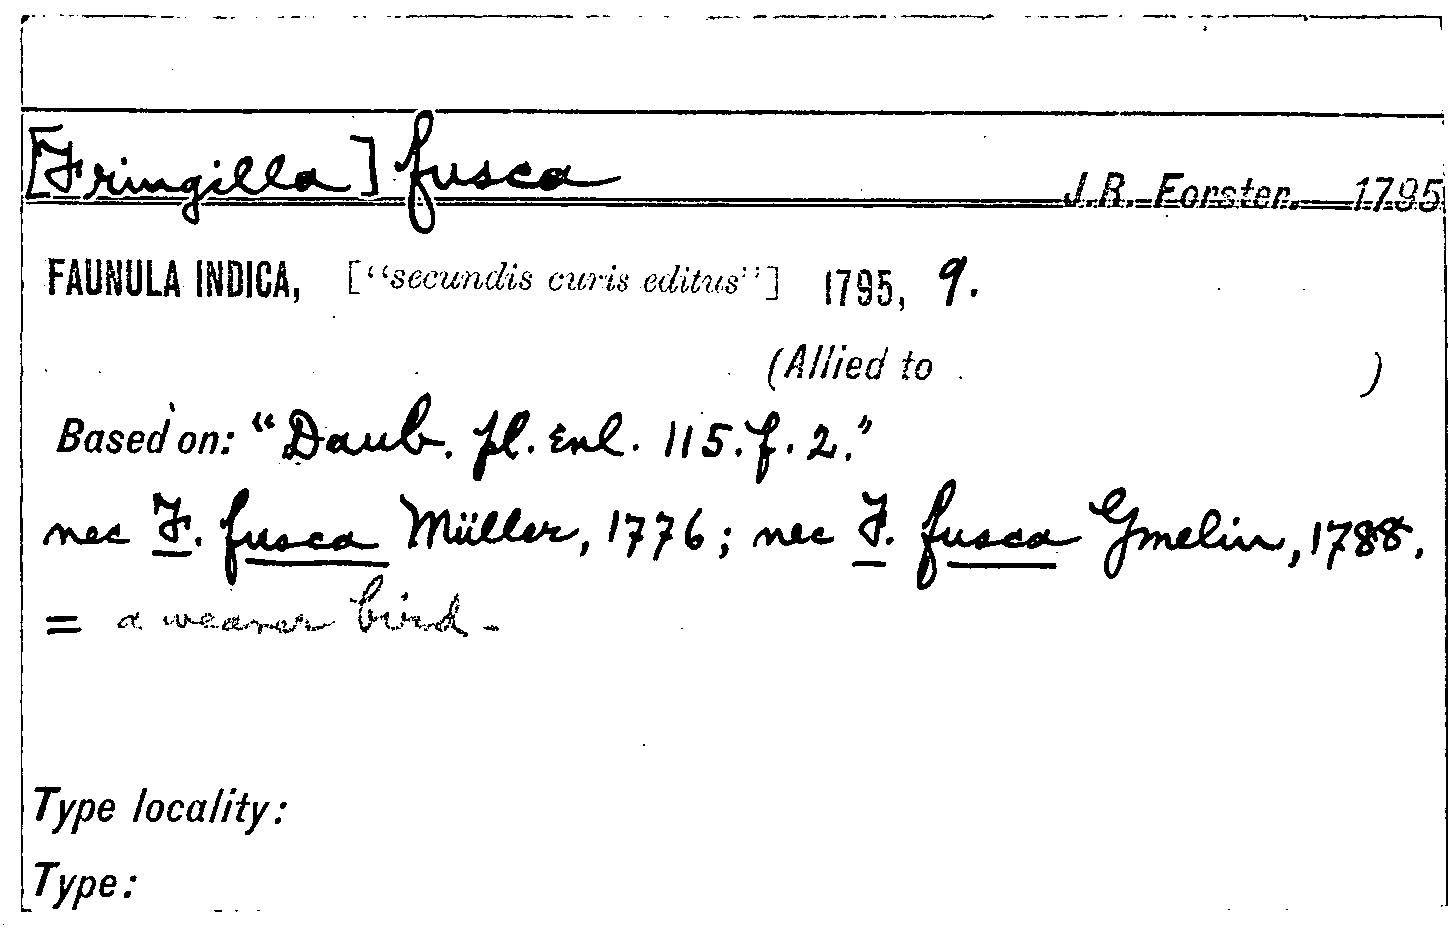 [Fringilla] fusca J.R. Forster. 1795
FAUNULA INDICA, ["secundis curis editus"] 1795, 9.
(Allied to )
Based on: "Daub. pl. enl. 115. f. 2."
nec F. fusca Müller, 1776; nec F. fusca Gmelin, 1788.
= a weaver bird -
Type locality:
Type: